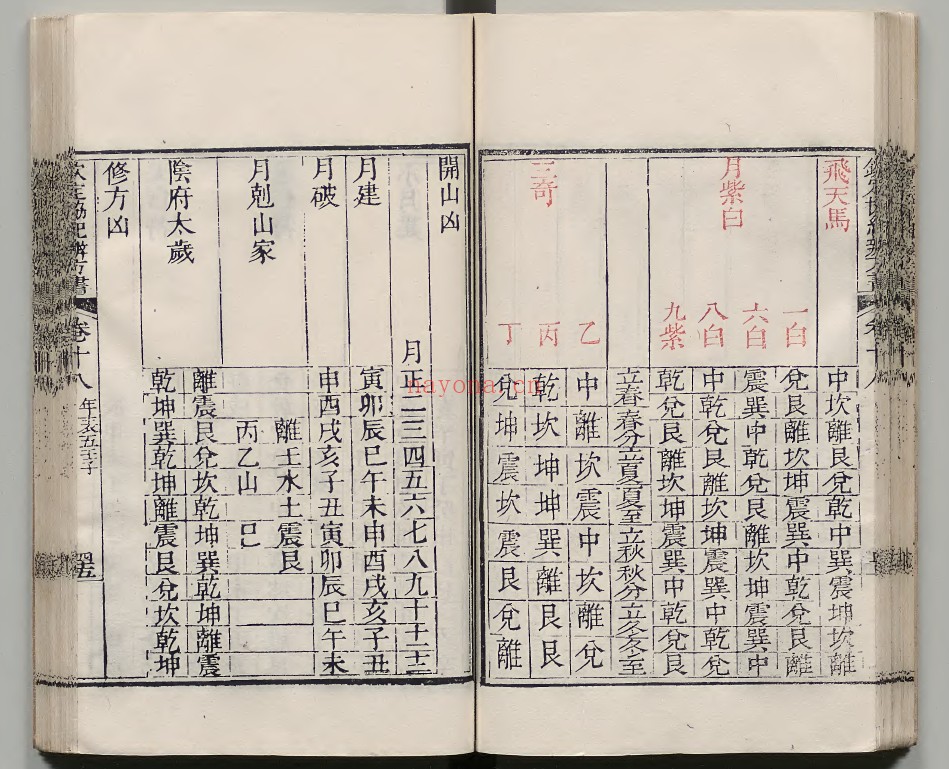 飛天馬 中坎離艮兌乾中巽震坤坎離
月紫白 一白 兌艮離坎坤震巽中乾兌艮離
六白 震巽中乾兌艮離坎坤震巽中
八白 中乾兌艮離坎坤震巽中乾兌
九紫 乾兌艮離坎坤震巽中乾兌艮
立春春分立夏夏至立秋秋分立冬冬至
三奇 乙 中離坎震中坎離兌
丙 乾坎坤坤巽離艮艮
丁 兌坤震坎震艮兌離
開山凶
月正二三四五六七八九十十一十二
月建 寅卯辰巳午未申酉戌亥子丑
月破 申酉戌亥子丑寅卯辰巳午未
月剋山家 離壬水土震艮
丙乙山 巳
陰府太歲 離震艮兌坎乾坤巽乾坤離震
乾坤巽乾坤離震艮兌坎乾坤
修方凶
欽定協紀辨方書 卷十八 年表五 子
hayona.cn